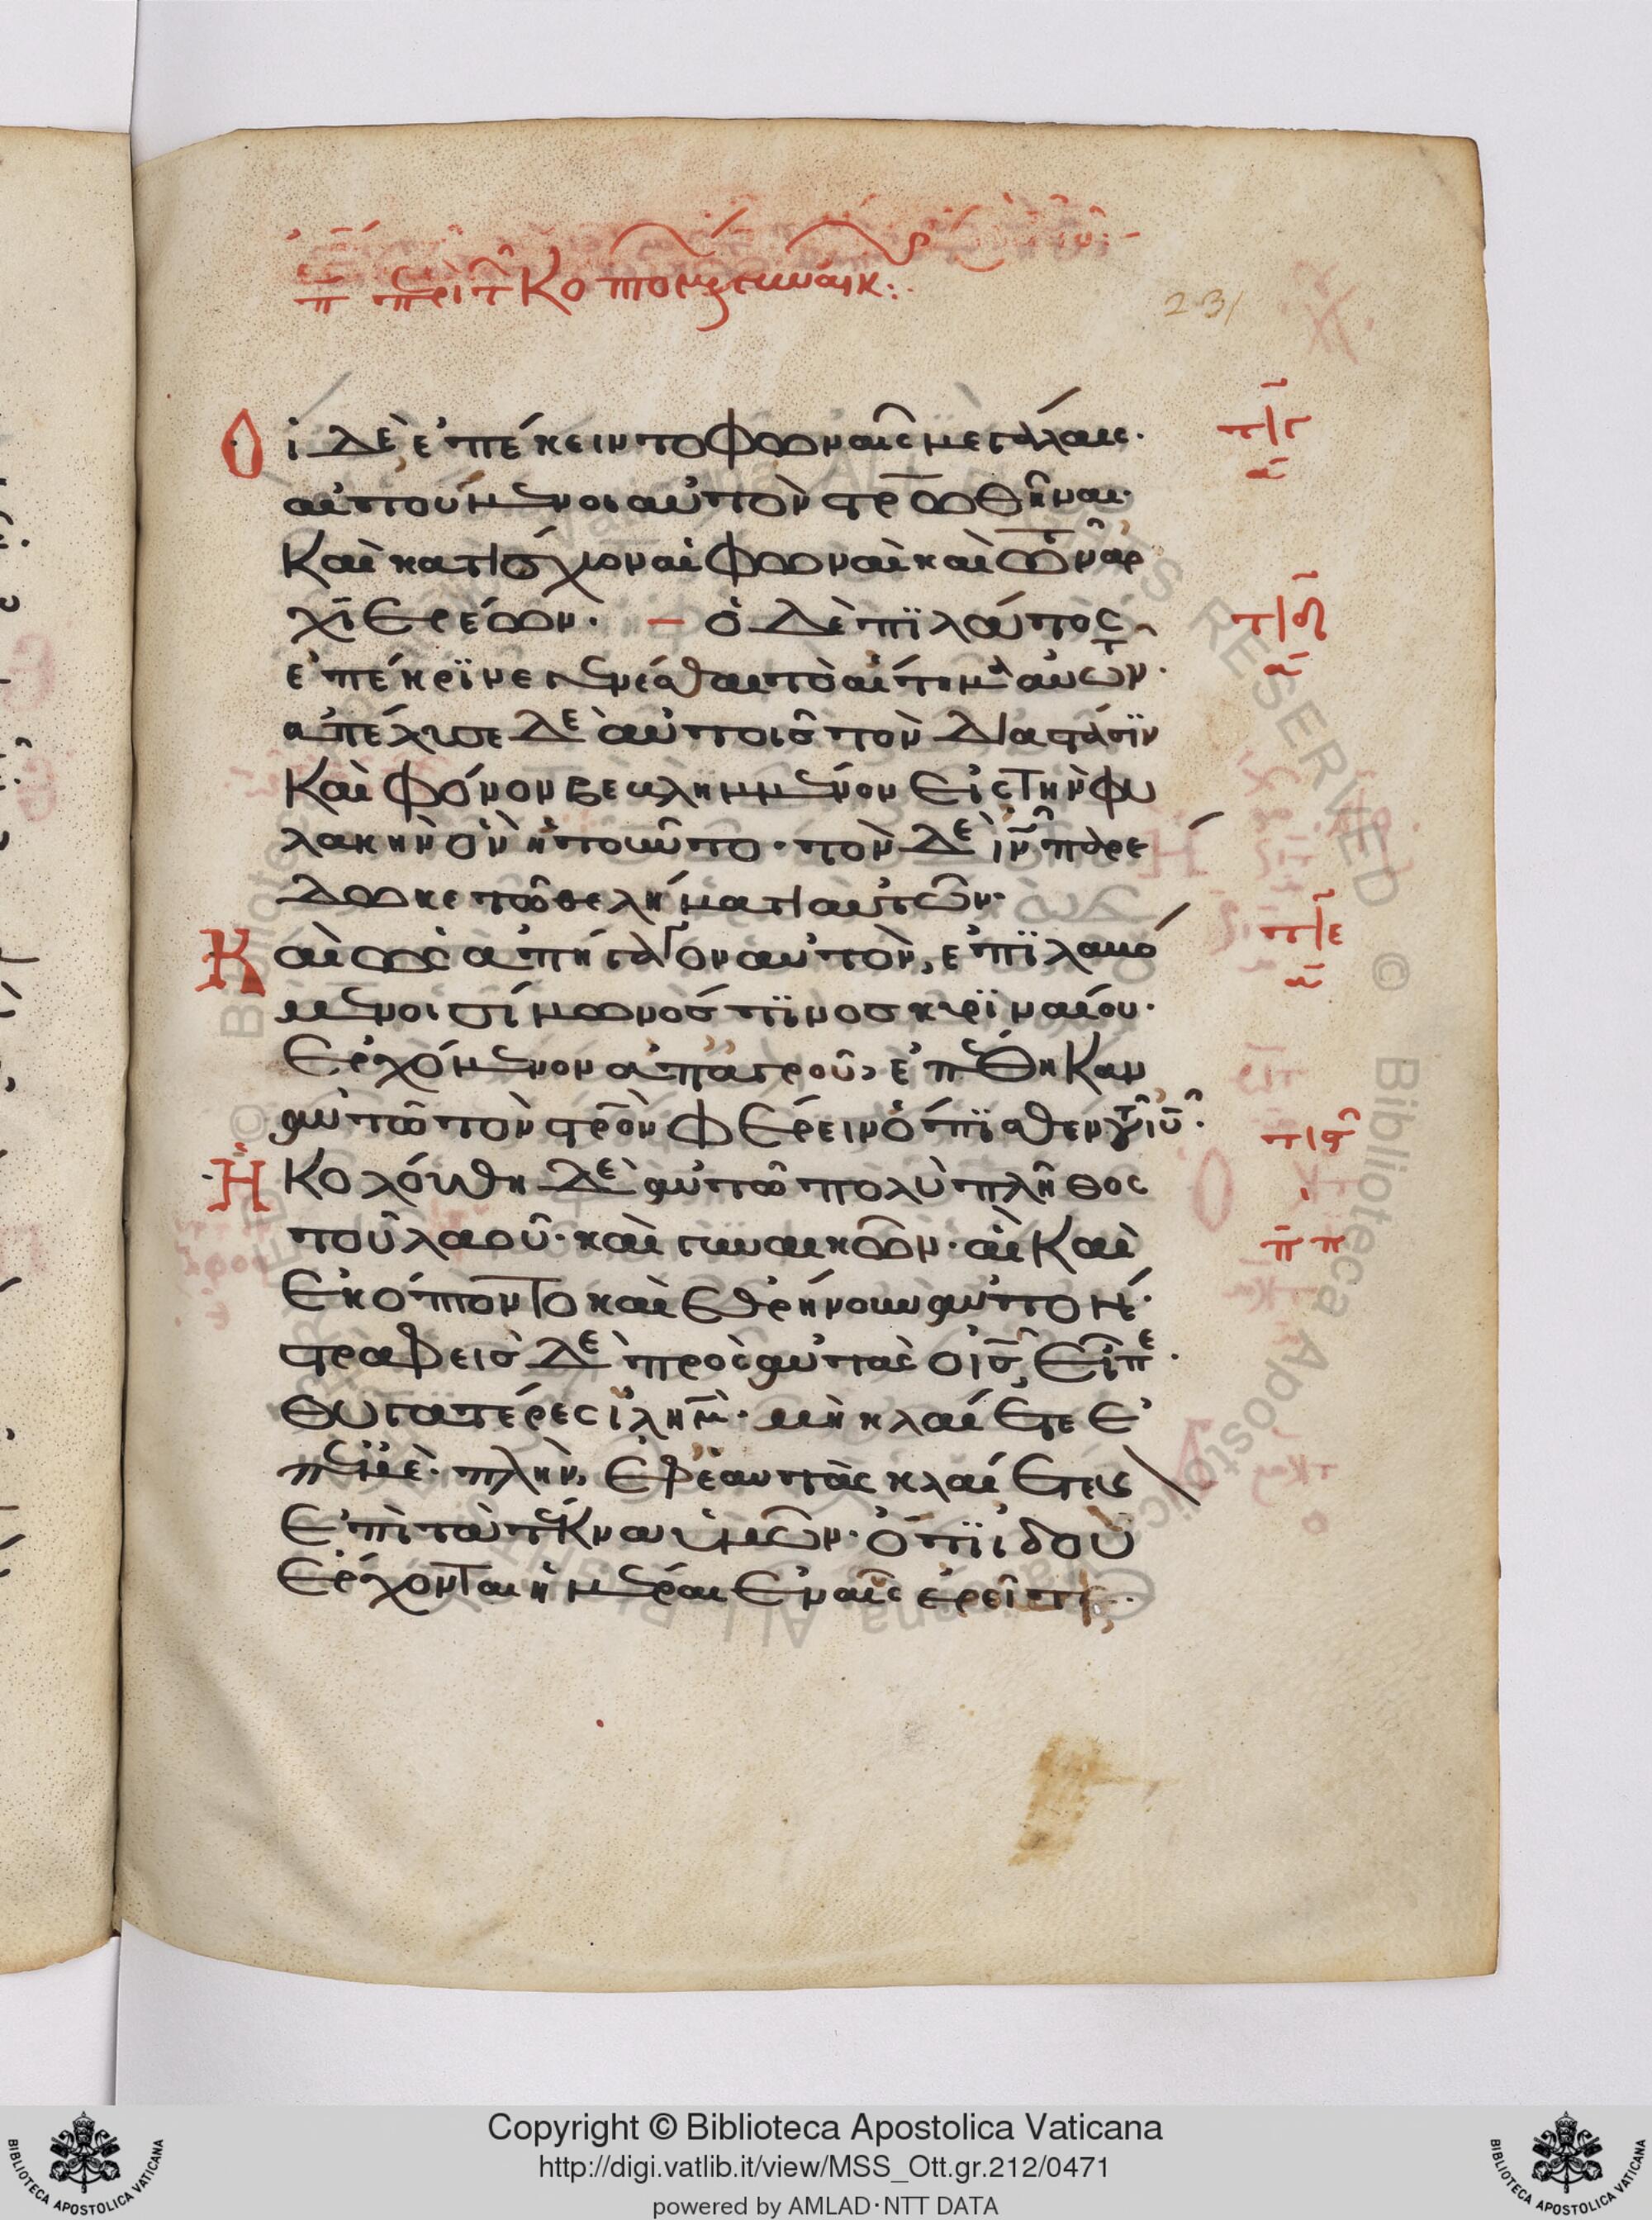 π̅ περὶ τ̑ Κοπτομ γυναικ:.
231
Οἱ δὲ ἐπέκειντο φωναῖς μεγάλαις·
αἰτούμενοι αὐτὸν στρ̅ωθῆναι·
Καὶ κατίσχυον αἱ φωναὶ καὶ τῶν ἀρ
χιερέων. – ὁ δὲ πϊλάτος
ἐπέκρϊνε γενέσθαι τὸ αἴτημα αὐτῶν·
ἀπέλυσε δὲ αὐτοῖς τὸν διὰ στάσϊν
Καὶ φόνον βεβλημμένον εἰς τὴν φυ
λακὴν ὃν ἠτοῦντο· τὸν δὲ ι̅ν̅ παρέ
δωκε τῶ θελήματι αὐτῶν·
Καὶ ὡς ἀπήγαγον αὐτὸν, ἐπϊλαβό
μενοι σίμωνός τϊνος κυρϊναίου·
Ἐρχόμενον ἀπ' ἀγροῦ, ἐπέθηκαν
αὐτῶ τὸν στρ̅ὸν φέρειν ὄπϊσθεν τοῦ ι̅υ̅·
Ἠκολούθη δὲ αὐτῶ πολὺ πλῆθος
τοῦ λαοῦ· καὶ γυναικῶν· αἳ καὶ
Ἐκόπτοντο καὶ ἐθρήνουν αὐτόν·
στραφεὶς δὲ πρὸς αὐτὰς ὁ ι̅ς̅, εἶπε·
Θυγατέρες ι̅λ̅η̅μ̅· μὴ κλαίετε ἐ
π' ἐμέ· πλὴν, ἐφ' ἑαυτὰς κλαίετε κ
Ἐπὶ τὰ τέκνα ὑμῶν· ὅτϊ ἰδοὺ
Ἔρχονται ἡμέραι ἐν αἷς ἐρεῖτε.
τ/γ
α̅
τ/δ
α̅
τ/ε
α̅
τ/ς
π̅ π
Copyright © Biblioteca Apostolica Vaticana
http://digi.vatlib.it/view/MSS_Ott.gr.212/0471
powered by AMLAD·NTT DATA
BIBLIOTECA APOSTOLICA VATICANA
BIBLIOTECA APOSTOLICA VATICANA